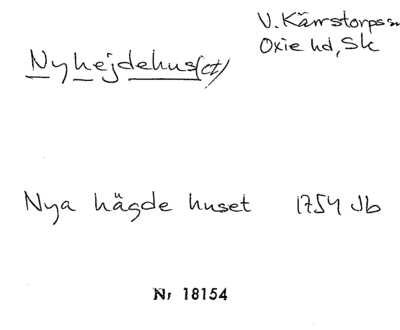 V. Kärrstorps sn
Oxie hd, Sk
Nyhejdehus(et)
Nya hägde huset 1754 Jb
Nr 18154